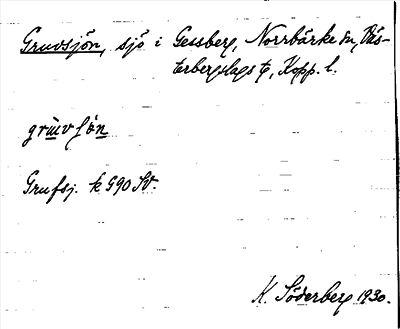 Gruvsjön, sjö i Gessberg, Norrbärke sn, Väs-
terbergslags tg, Kopp. l.
grùvſön
Grufsj. k G90 SV.
K. Söderberg 1930.